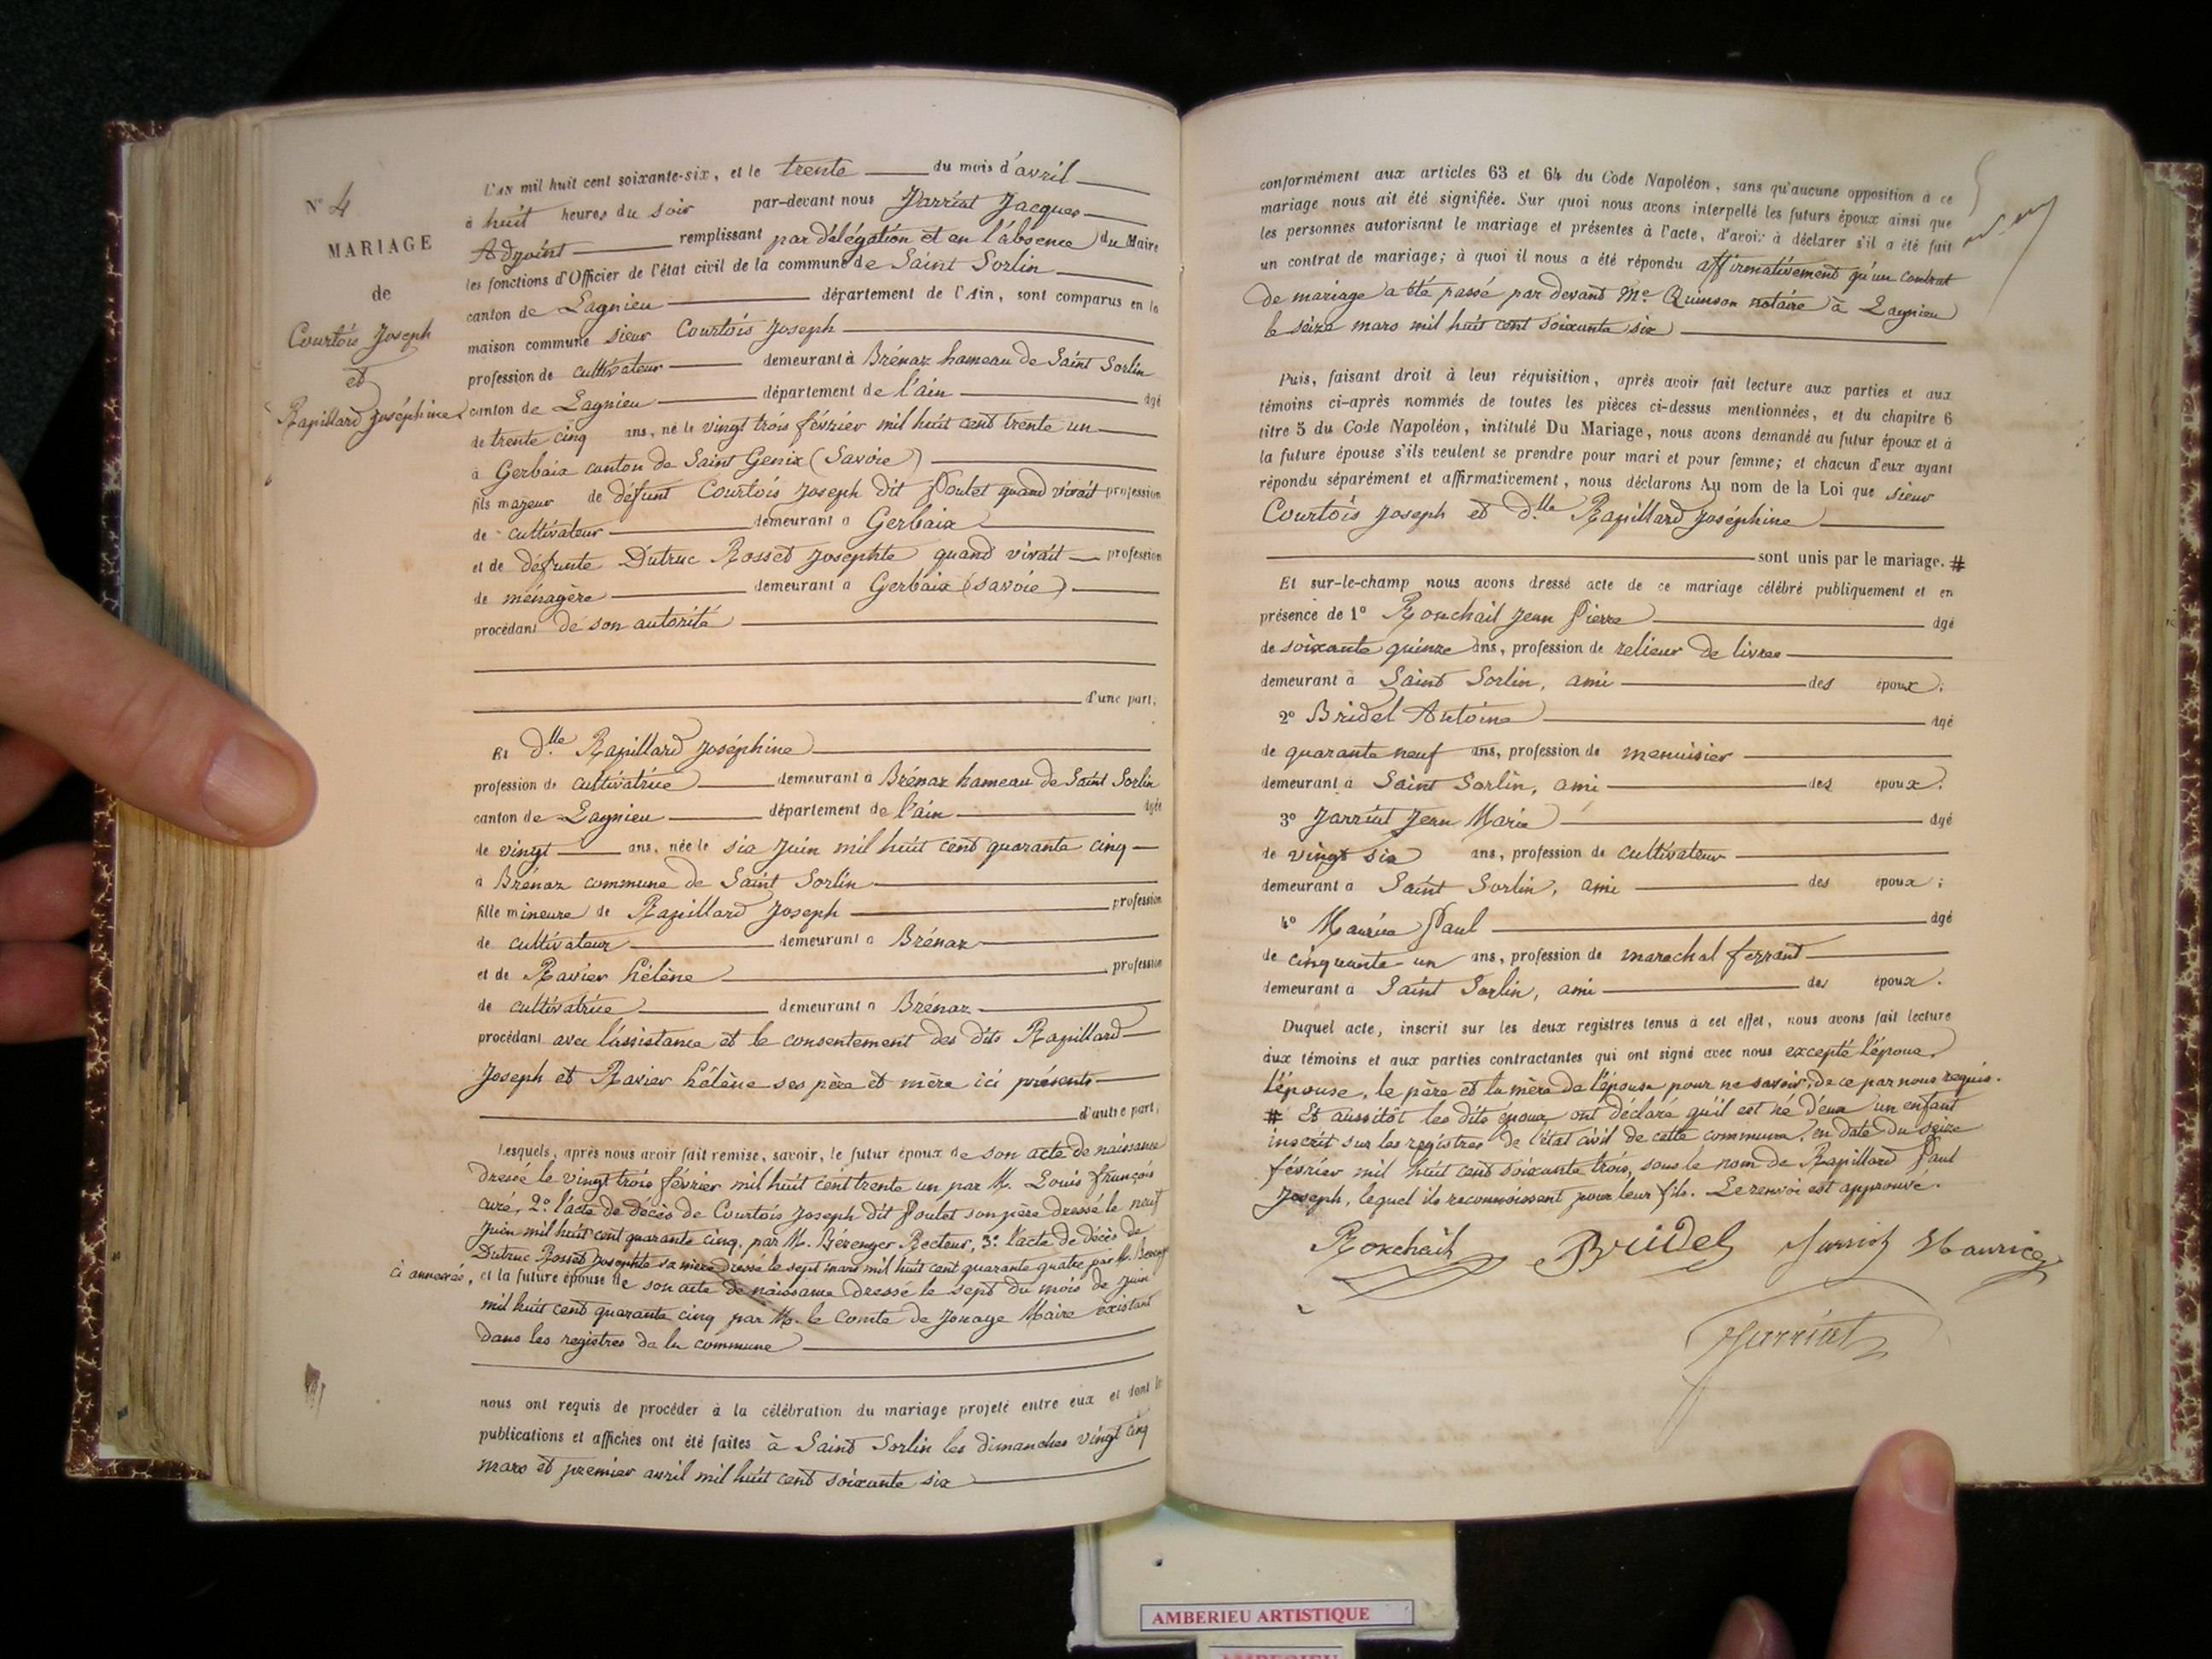 N° 4
MARIAGE
de
Courtois Joseph
et
Rapillard Joséphine
L'AN mil huit cent soixante-six, et le trente du mois d'avril
à huit heures du soir par-devant nous Jarriat Jacques
Adjoint remplissant par délégation et en l'absence du Maire
les fonctions d'Officier de l'état civil de la commune de Saint Sorlin
canton de Lagnieu département de l'Ain, sont comparus en la
maison commune sieur Courtois Joseph
profession de cultivateur demeurant à Brénaz hameau de Saint Sorlin
canton de Lagnieu département de l'ain âgé
de trente cinq ans, né le vingt trois février mil huit cent trente un
à Gerbaix canton de Saint Genix (Savoie)
fils majeur de défunt Courtois Joseph dit Poulet quand vivait profession
de cultivateur demeurant à Gerbaix
et de défunte Dutruc Rosset Josephte quand vivait profession
de ménagère demeurant à Gerbaix (Savoie)
procédant de son autorité
d'une part;
Et dlle Rapillard Joséphine
profession de cultivatrice demeurant à Brénaz hameau de Saint Sorlin
canton de Lagnieu département de l'ain âgée
de vingt ans, née le six Juin mil huit cent quarante cinq
à Brénaz commune de Saint Sorlin
fille mineure de Rapillard Joseph profession
de cultivateur demeurant à Brénaz
et de Ravier hélène profession
de cultivatrice demeurant à Brénaz
procédant avec l'assistance et le consentement des dits Rapillard
Joseph et Ravier hélène ses père et mère ici présents
d'autre part;
Lesquels, après nous avoir fait remise, savoir, le futur époux de son acte de naissance
dressé le vingt trois février mil huit cent trente un par M. Louis françois
curé, 2° l'acte de décès de Courtois Joseph dit Poulet son père dressé le neuf
Juin mil huit cent quarante cinq, par M. Bérenger Recteur, 3° l'acte de décès de
Dutruc Rosset Josephte sa mère dressé le sept mars mil huit cent quarante quatre par M.
ci annexés, et la future épouse de son acte de naissance dressé le sept du mois de juin
mil huit cent quarante cinq par M. le Comte de Jonage Maire existant
dans les registres de la commune
nous ont requis de procéder à la célébration du mariage projeté entre eux et dont les
publications et affiches ont été faites à Saint Sorlin les dimanches vingt cinq
mars et premier avril mil huit cent soixante six
conformément aux articles 63 et 64 du Code Napoléon, sans qu'aucune opposition à ce
mariage nous ait été signifiée. Sur quoi nous avons interpellé les futurs époux ainsi que
les personnes autorisant le mariage et présentes à l'acte, d'avoir à déclarer s'il a été fait
un contrat de mariage; à quoi il nous a été répondu affirmativement qu'un contrat
de mariage a été passé par devant Me Quinson notaire à Lagnieu
le seize mars mil huit cent soixante six
Puis, faisant droit à leur réquisition, après avoir fait lecture aux parties et aux
témoins ci-après nommés de toutes les pièces ci-dessus mentionnées, et du chapitre 6
titre 5 du Code Napoléon, intitulé Du Mariage, nous avons demandé au futur époux et à
la future épouse s'ils veulent se prendre pour mari et pour femme; et chacun d'eux ayant
répondu séparément et affirmativement, nous déclarons Au nom de la Loi que sieur
Courtois Joseph et dlle Rapillard Joséphine
sont unis par le mariage. #
Et sur-le-champ nous avons dressé acte de ce mariage célébré publiquement et en
présence de 1° Ronchail Jean Pierre âgé
de soixante quinze ans, profession de relieur de livres
demeurant à Saint Sorlin, ami des époux;
2° Bridel Antoine âgé
de quarante neuf ans, profession de menuisier
demeurant à Saint Sorlin, ami des époux;
3° Jarriat Jean Marie âgé
de vingt six ans, profession de cultivateur
demeurant à Saint Sorlin, ami des époux;
4° Maurice Paul âgé
de cinquante un ans, profession de marechal ferrant
demeurant à Saint Sorlin, ami des époux.
Duquel acte, inscrit sur les deux registres tenus à cet effet, nous avons fait lecture
aux témoins et aux parties contractantes qui ont signé avec nous excepté l'époux,
l'épouse, le père et la mère de l'épouse pour ne savoir, de ce par nous requis.
# Et aussitôt les dits époux ont déclaré qu'il est né d'eux un enfant
inscrit sur les registres de l'état civil de cette commune, en date du seize
février mil huit cent soixante trois, sous le nom de Rapillard Paul
Joseph, lequel ils reconnoissent pour leur fils. Le renvoi est approuvé.
Ronchail Bridel Jarriat Maurice
Jarriat
AMBERIEU ARTISTIQUE
AMBERIEU